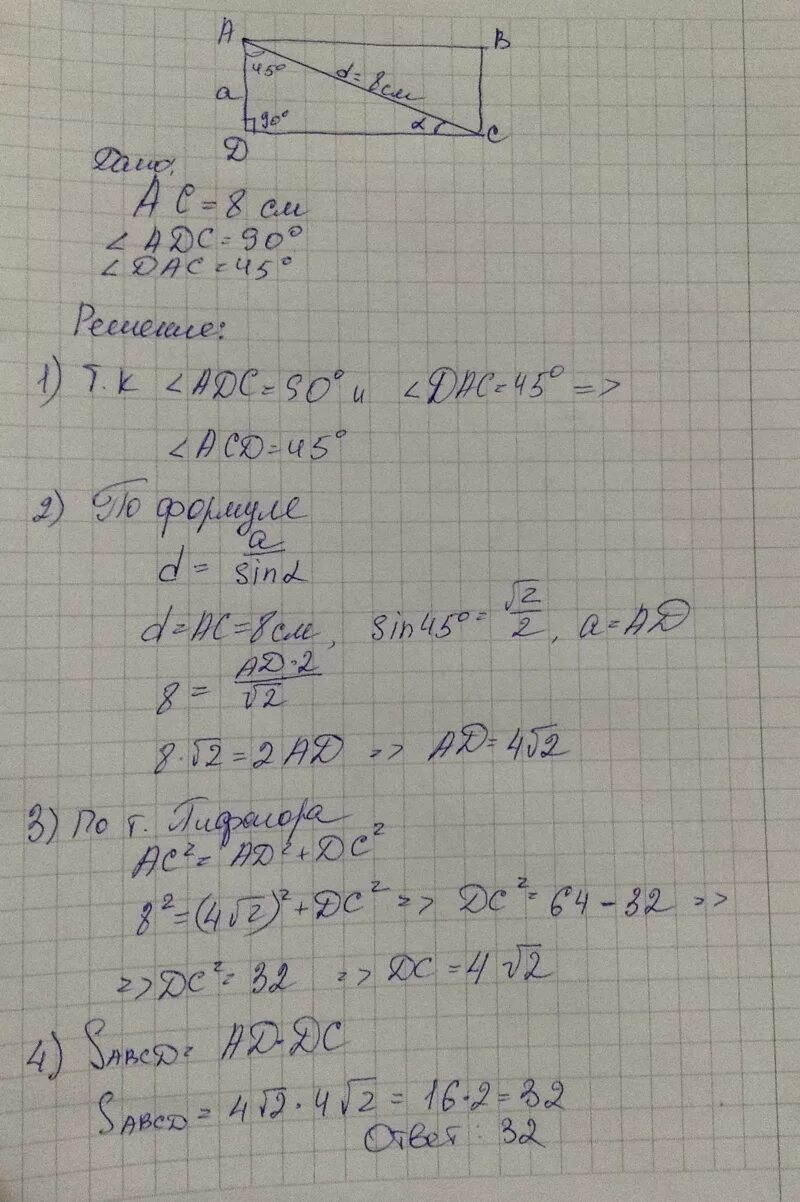 A B
45° d = 8см
a
90° α C
D
Дано:
AC = 8 см
∠ADC = 90°
∠DAC = 45°
Решение:
1) Т.к ∠ADC = 90° и ∠DAC = 45° =>
∠ACD = 45°
2) По формуле
d = a/sinα
d = AC = 8см, sin45° = √2/2, a = AD
8 = AD·2/√2
8·√2 = 2AD => AD = 4√2
3) По т. Пифагора
AC² = AD² + DC²
8² = (4√2)² + DC² => DC² = 64 - 32 =>
=> DC² = 32 => DC = 4√2
4) SABCD = AD·DC
SABCD = 4√2 · 4√2 = 16·2 = 32
Ответ: 32